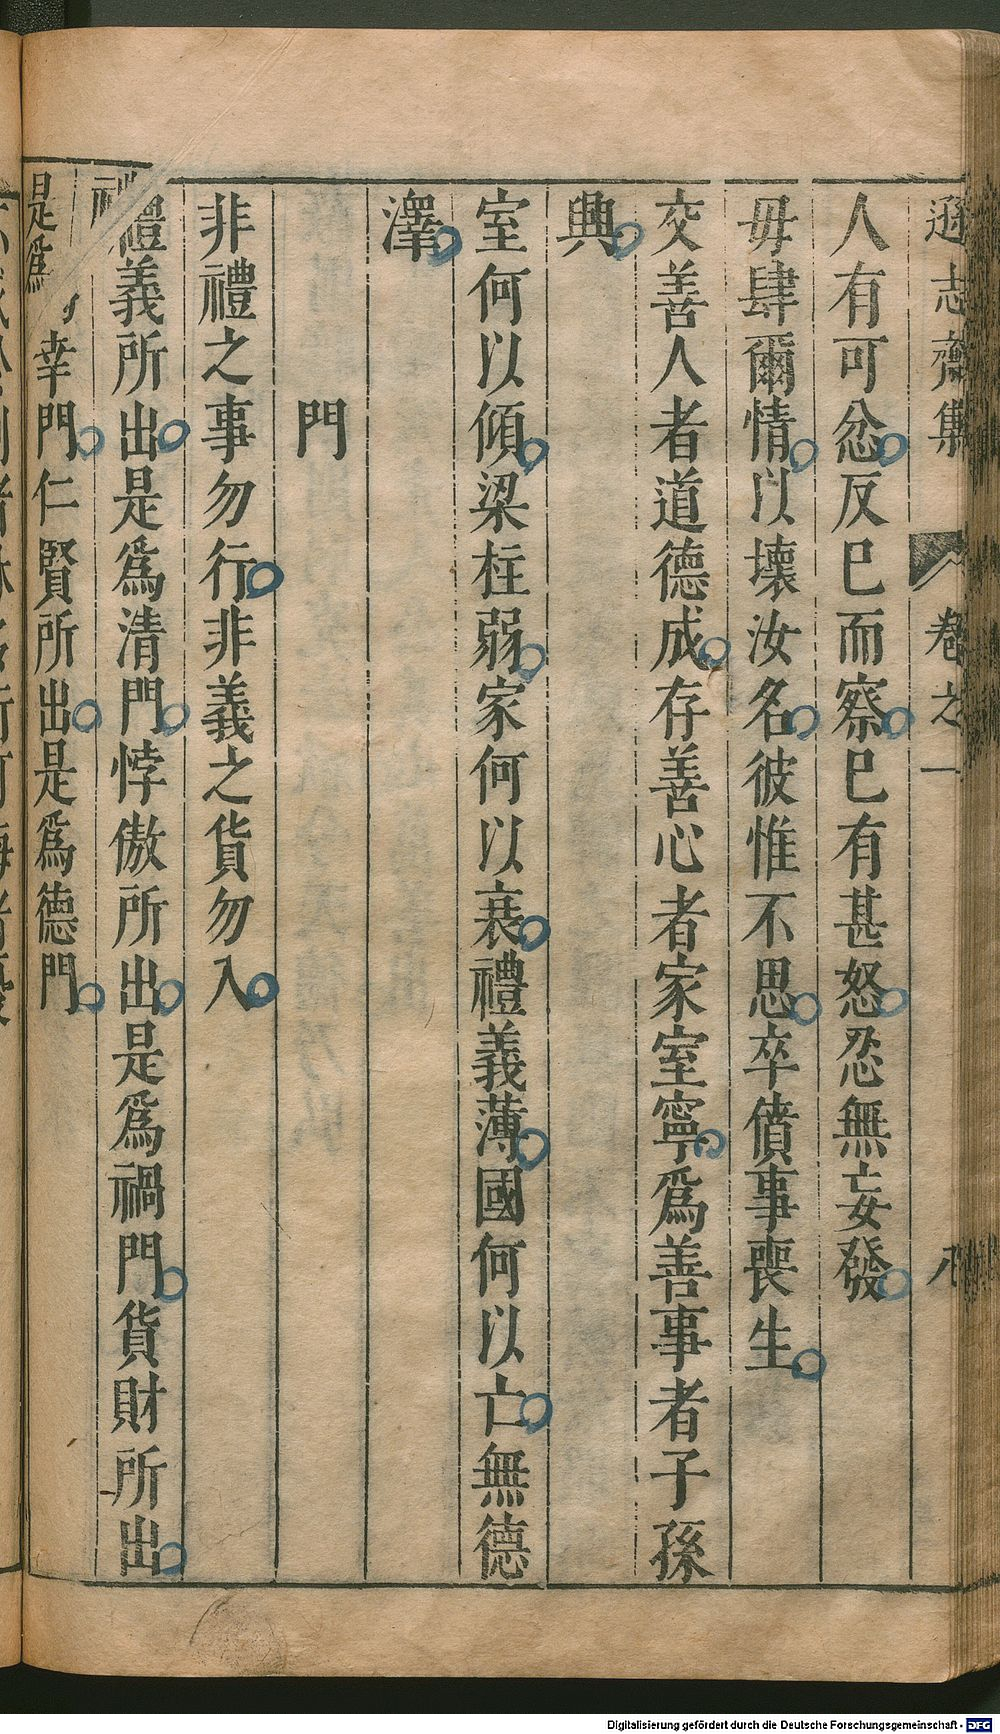 遜志齋集 卷之一 八
人有可忿反己而察己有甚怒忍無妄發
毋肆爾情以壞汝名彼惟不思卒僨事喪生
交善人者道德成存善心者家室寧爲善事者子孫
興
室何以傾梁柱弱家何以衰禮義薄國何以亡無德
澤
門
非禮之事勿行非義之貨勿入
禮義所出是爲清門悖傲所出是爲禍門貨財所出
是爲幸門仁賢所出是爲德門
Digitalisierung gefördert durch die Deutsche Forschungsgemeinschaft - DFG